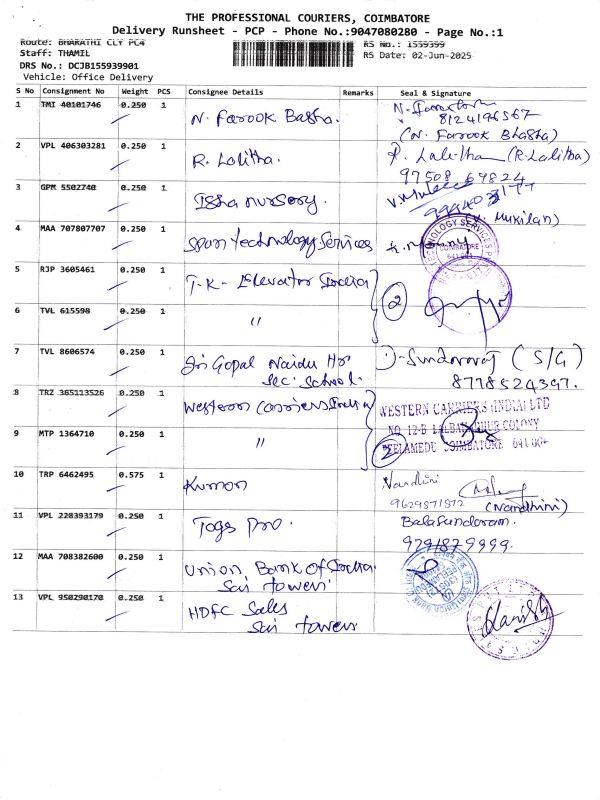 THE PROFESSIONAL COURIERS, COIMBATORE
Delivery Runsheet - PCP - Phone No.:9047080280 - Page No.:1
Route: BHARATHI CLY PC4
RS No.: 1559399
Staff: THAMIL
RS Date: 02-Jun-2025
DRS No.: DCJB155939901
Vehicle: Office Delivery
S No Consignment No Weight PCS Consignee Details Remarks Seal & Signature
1 TMI 40101746 0.250 1 N. Farook Basha.
8124196567
(N. Farook Bhasha)
2 VPL 406303281 0.250 1 R. Lalitha. R. Lalitha (R. Lalitha)
97508 69824
3 GPM 5502740 0.250 1 Isha nursery.
(V. Mukilan)
4 MAA 707807707 0.250 1 Span Technology Services
COIMBATORE
5 RJP 3605461 0.250 1 T.K- Elevator India
2
6 TVL 615598 0.250 1 "
7 TVL 8606574 0.250 1 Gopal Naidu Hr Sec. School. D-Sundararaj (S/G)
8778524397.
8 TRZ 365113526 0.250 1 Western Carriers India
WESTERN CARRIERS (INDIA) LTD
NO 12-B LALBAHADHUR COLONY
9 MTP 1364710 0.250 1 "
2
PEELAMEDU COIMBATORE 641 004
10 TRP 6462495 0.575 1 Kumon Nandhini
9629871872 (Nandhini)
11 VPL 228393179 0.250 1 Togs Pro. Balasundaram.
9791879999.
12 MAA 708382600 0.250 1 Union Bank Of India.
Sai Towers
13 VPL 950290170 0.250 1 HDFC Sales
Sai towers